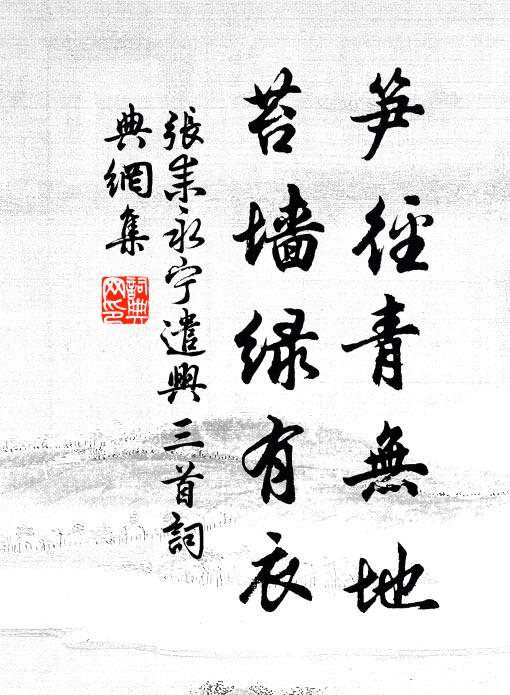 笋径青無地
苔墙緑有衣
張耒永宁遣興三首詞
典網集
詞典
网印